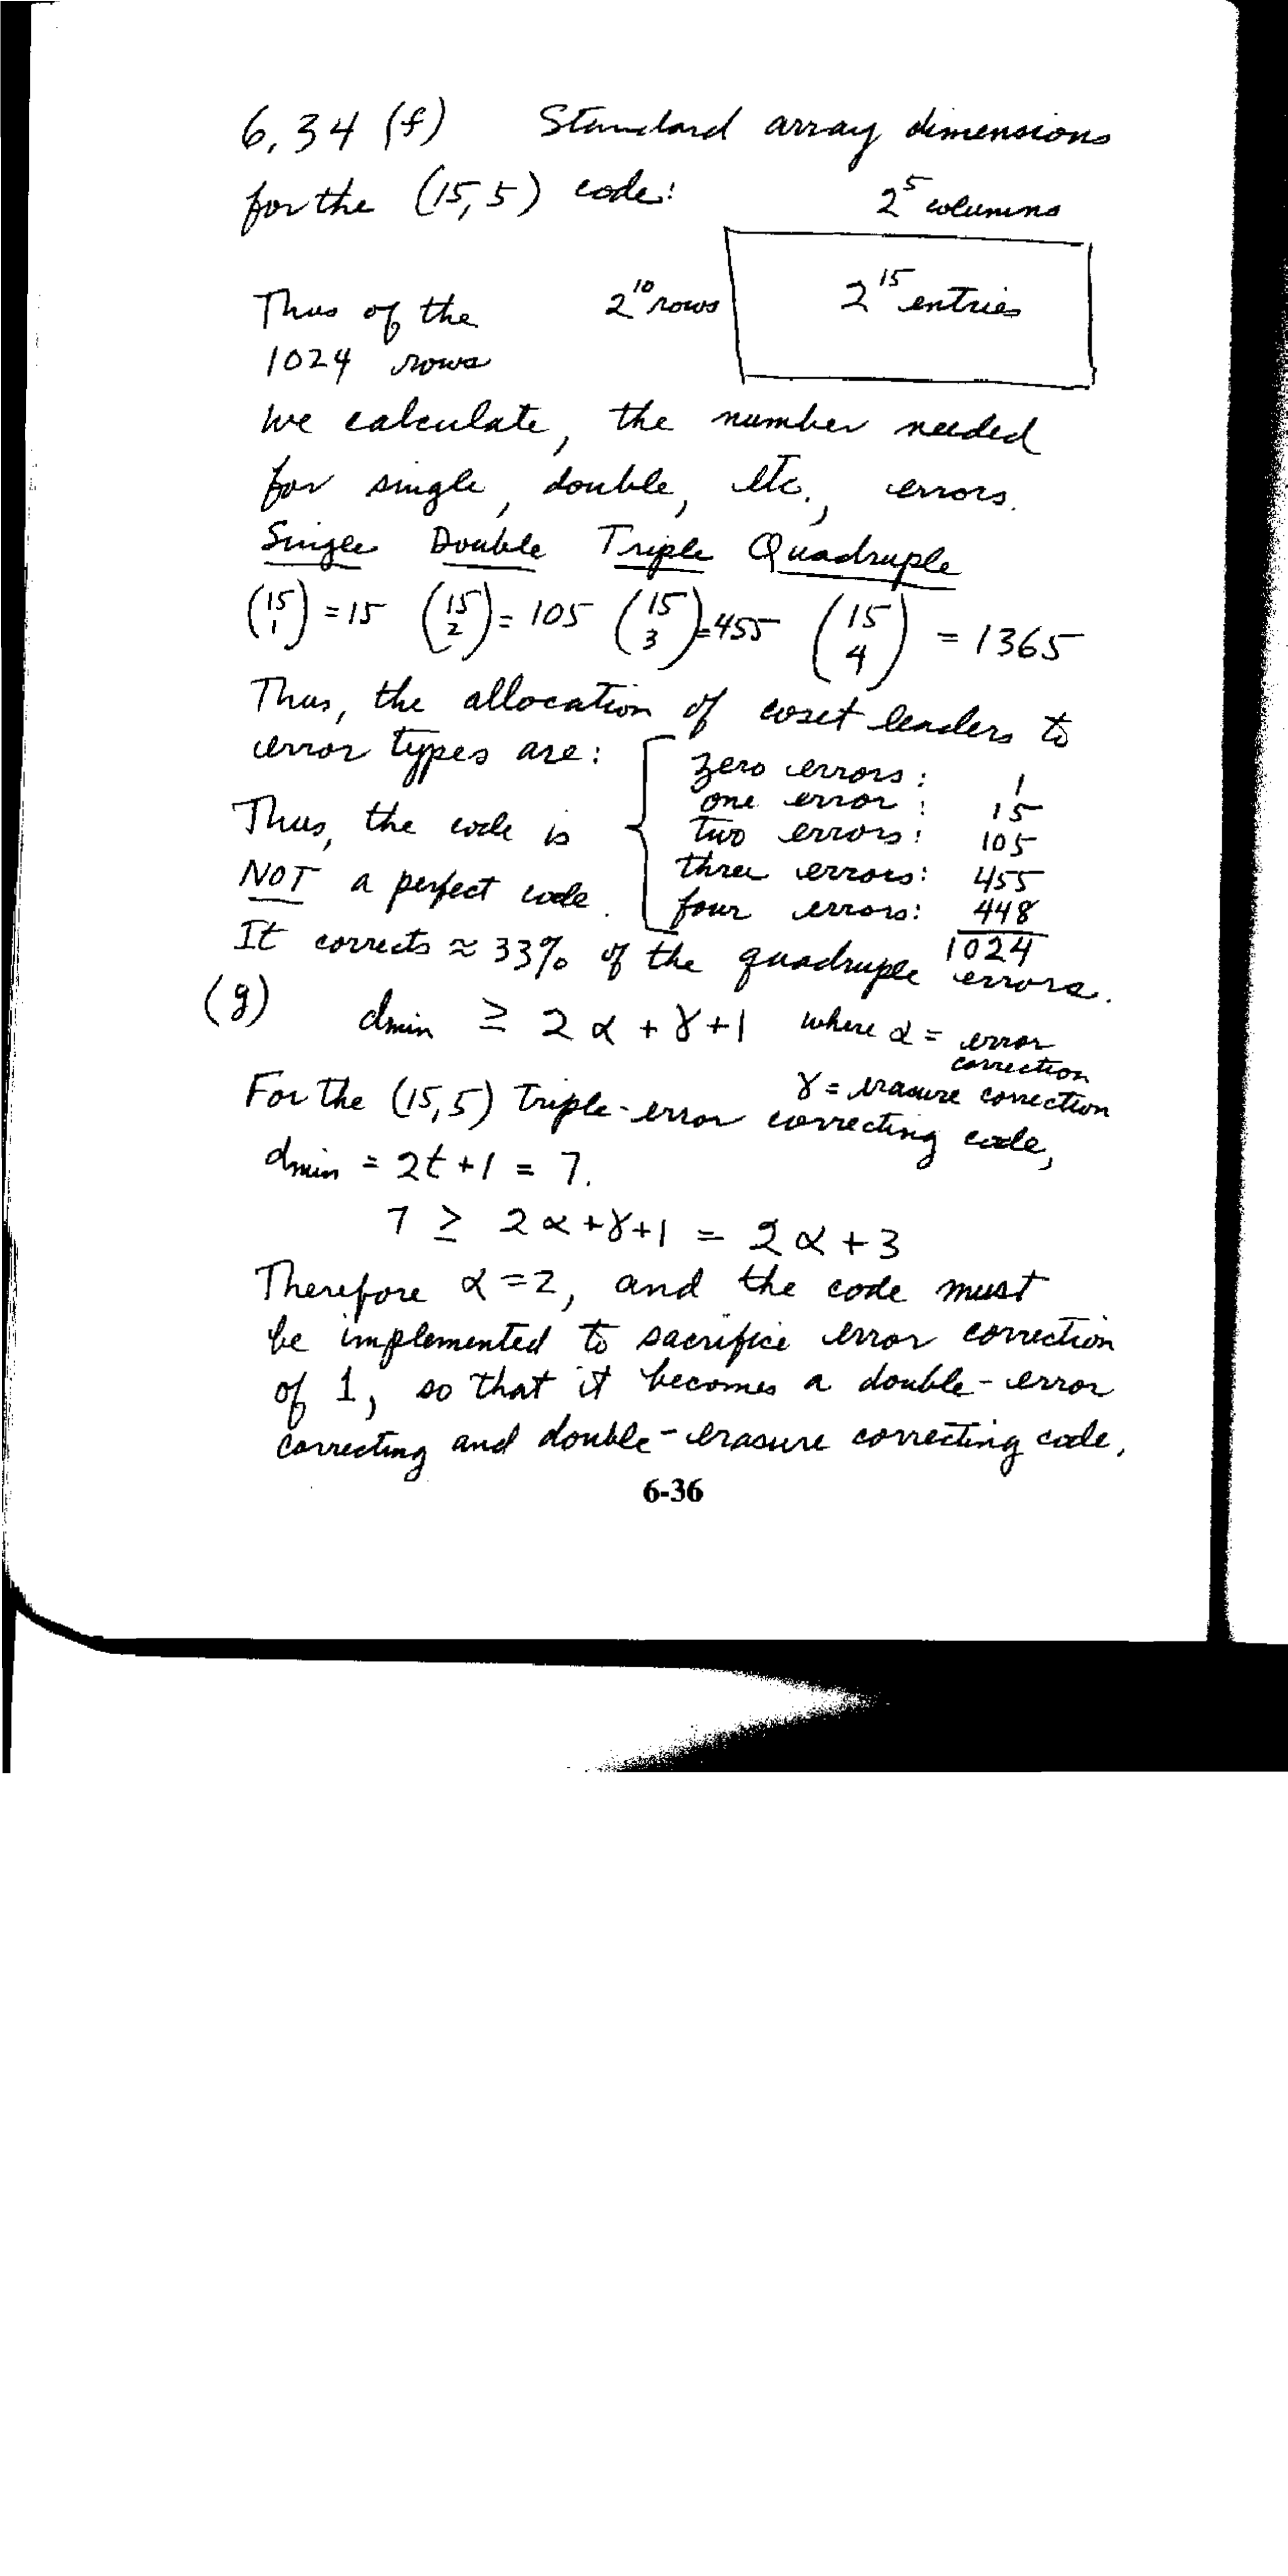 6.34 (f) Standard array dimensions
for the (15, 5) code:
2^5 columns
2^10 rows
2^15 entries
Thus of the
1024 rows
we calculate, the number needed
for single, double, etc., errors.
Single Double Triple Quadruple
(15 1) = 15 (15 2) = 105 (15 3) = 455 (15 4) = 1365
Thus, the allocation of coset leaders to
error types are:
zero errors: 1
one error: 15
two errors: 105
three errors: 455
four errors: 448
1024
Thus, the code is
NOT a perfect code.
It corrects ≈ 33% of the quadruple errors.
(g) dmin ≥ 2α + γ + 1 where α = error
correction
γ = erasure correction
For the (15, 5) triple-error correcting code,
dmin = 2t + 1 = 7.
7 ≥ 2α + γ + 1 = 2α + 3
Therefore α = 2, and the code must
be implemented to sacrifice error correction
of 1, so that it becomes a double-error
correcting and double-erasure correcting code,
6-36